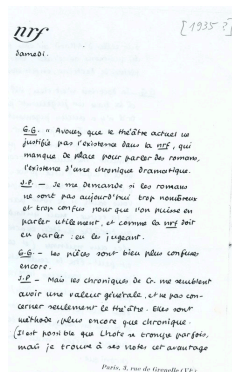 nrf
[1935 ?]
Samedi.
G.G. " Avouez que le théâtre actuel ne
justifie pas l'existence dans la nrf, qui
manque de place pour parler des romans,
l'existence d'une chronique dramatique.
J.P. — Je me demande si les romans
ne sont pas aujourd'hui trop nombreux
et trop confus pour que l'on puisse en
parler utilement, et comme la nrf doit
en parler : en les jugeant.
G.G. — Les pièces sont bien plus confuses
encore.
J.P — Mais les chroniques de Cr. me semblent
avoir une valeur générale, et ne pas con-
cerner seulement le théâtre. Elles sont
méthode, plus encore que chronique.
Il est possible que Lhote se trompe parfois,
mais je trouve à ses notes cet avantage
Paris, 3, rue de Grenelle (VIe)